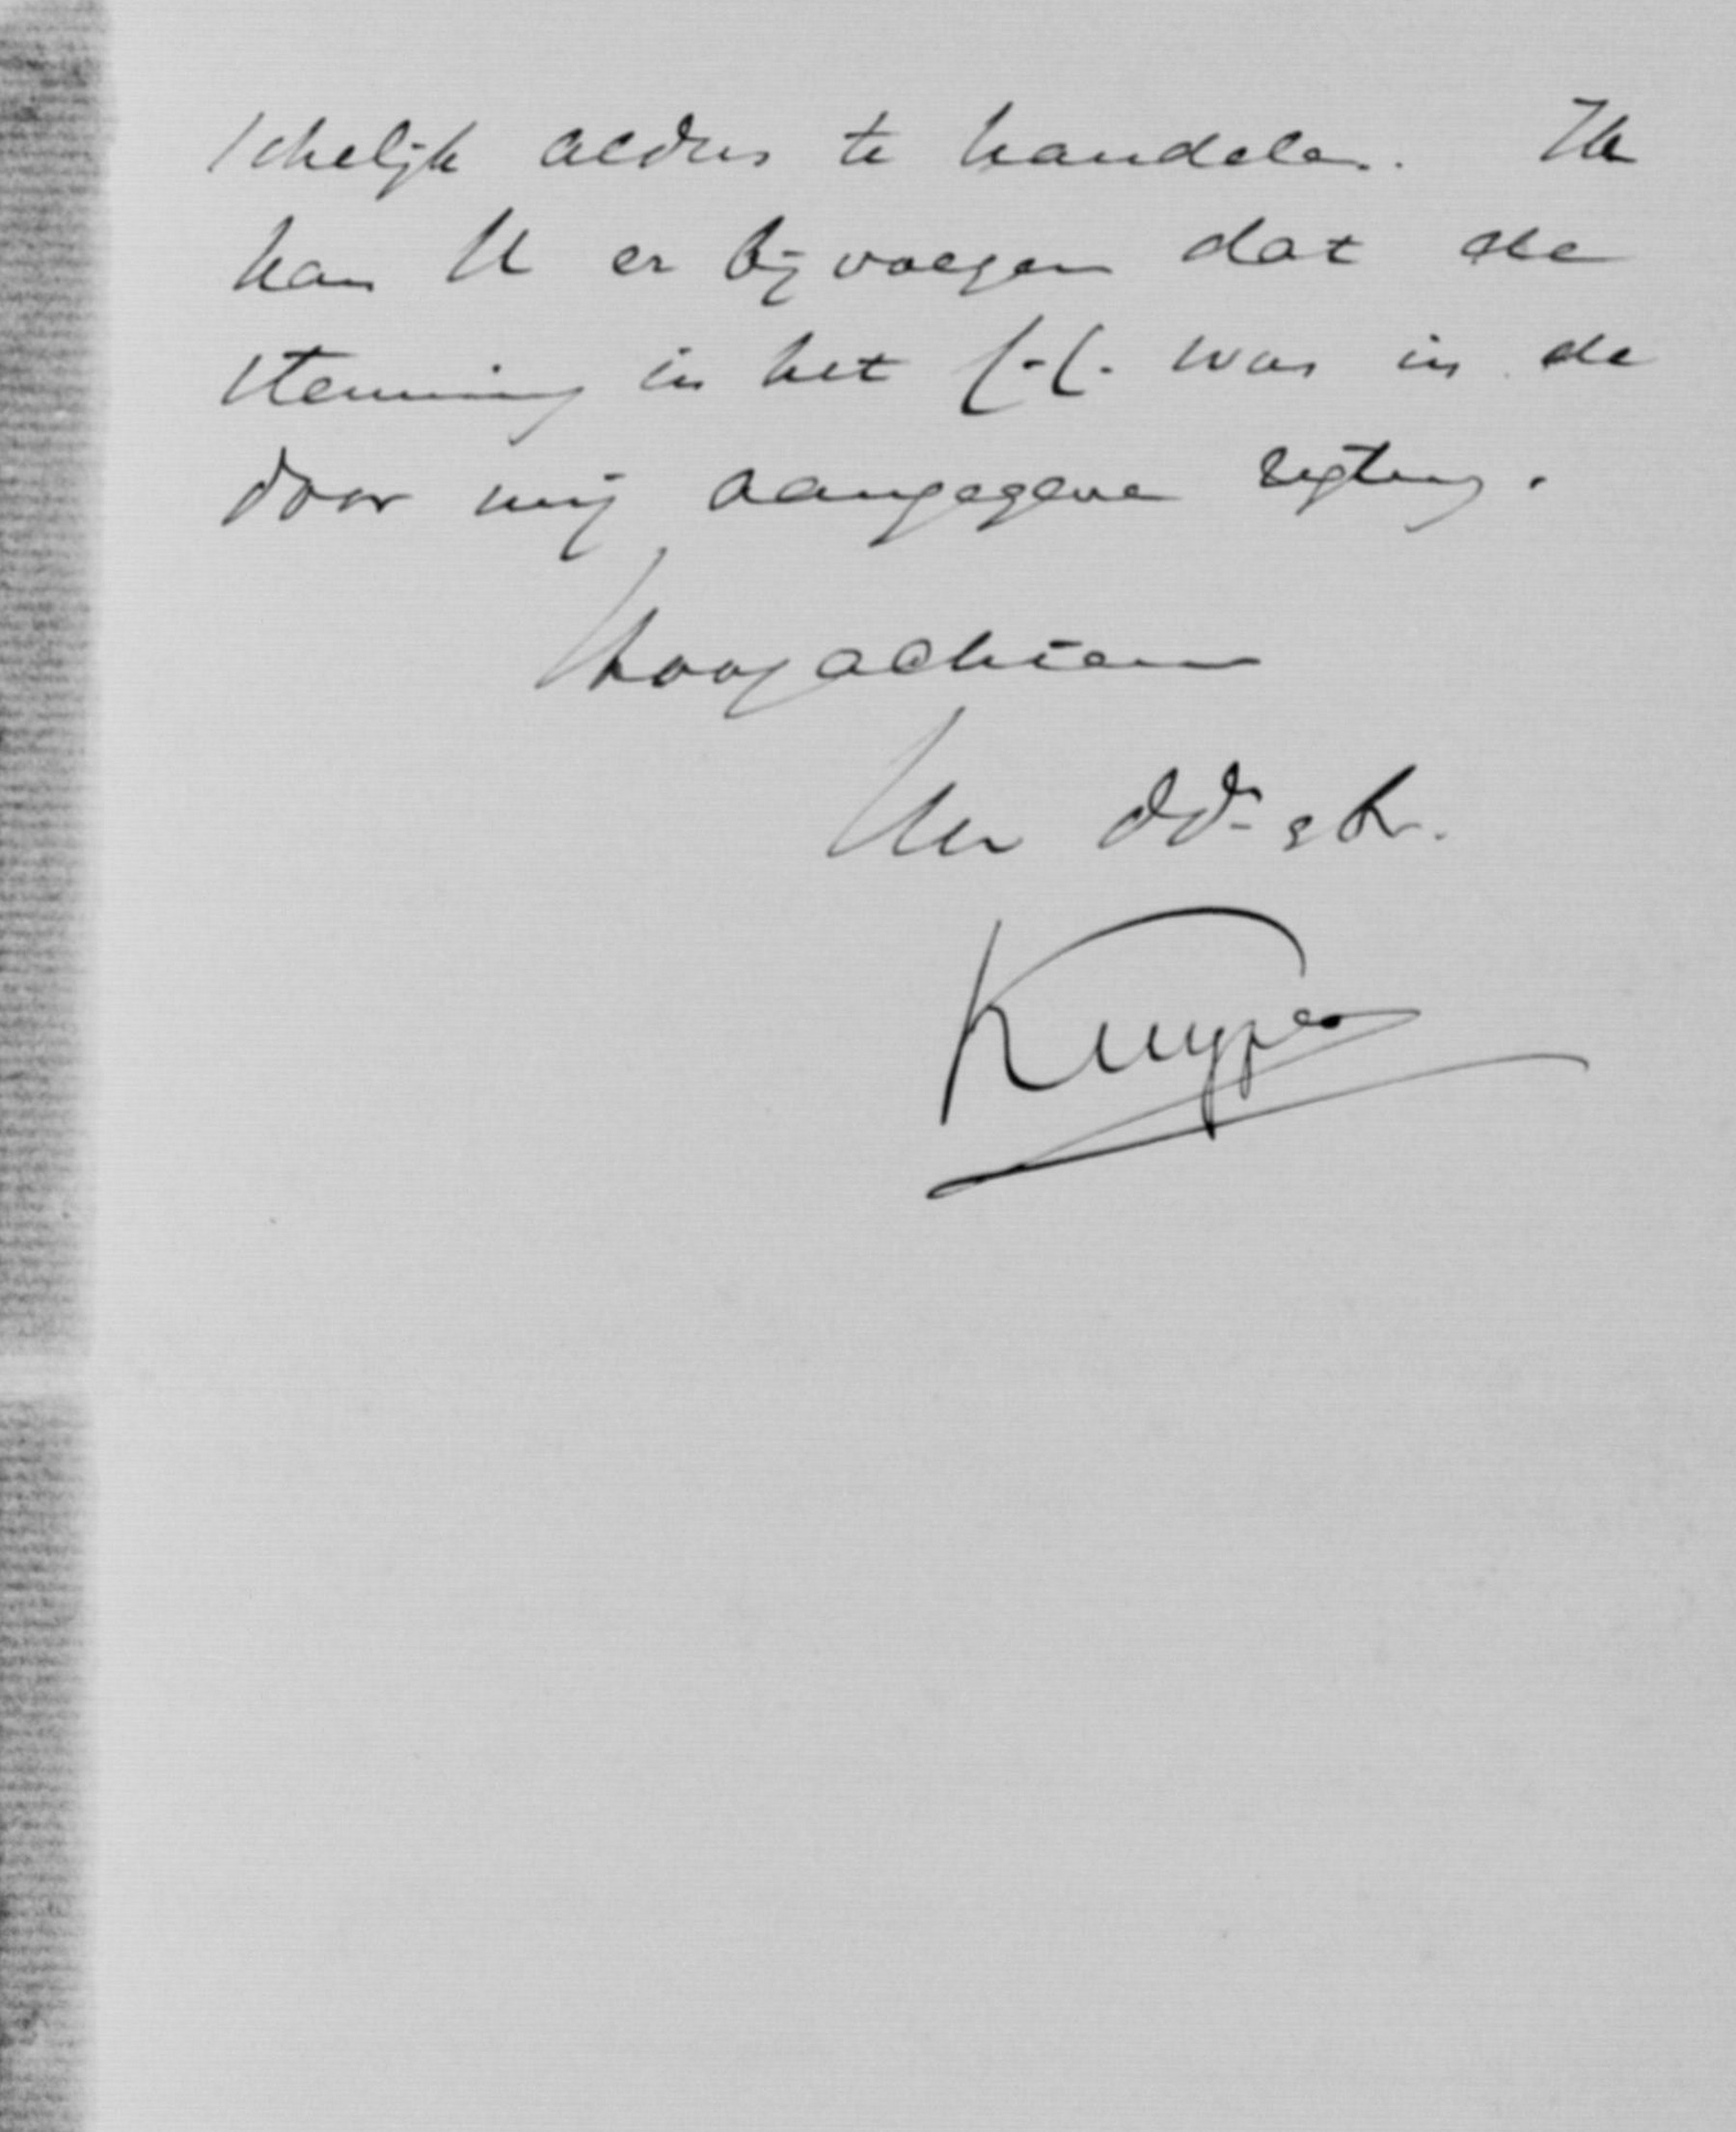 schelijk aldus te handelen. Ik
kan U er bijvoegen dat de
stemming in het C.C. was in de
door mij aangegeven regting.
Hoogachtend
Uw dd
Kuyper